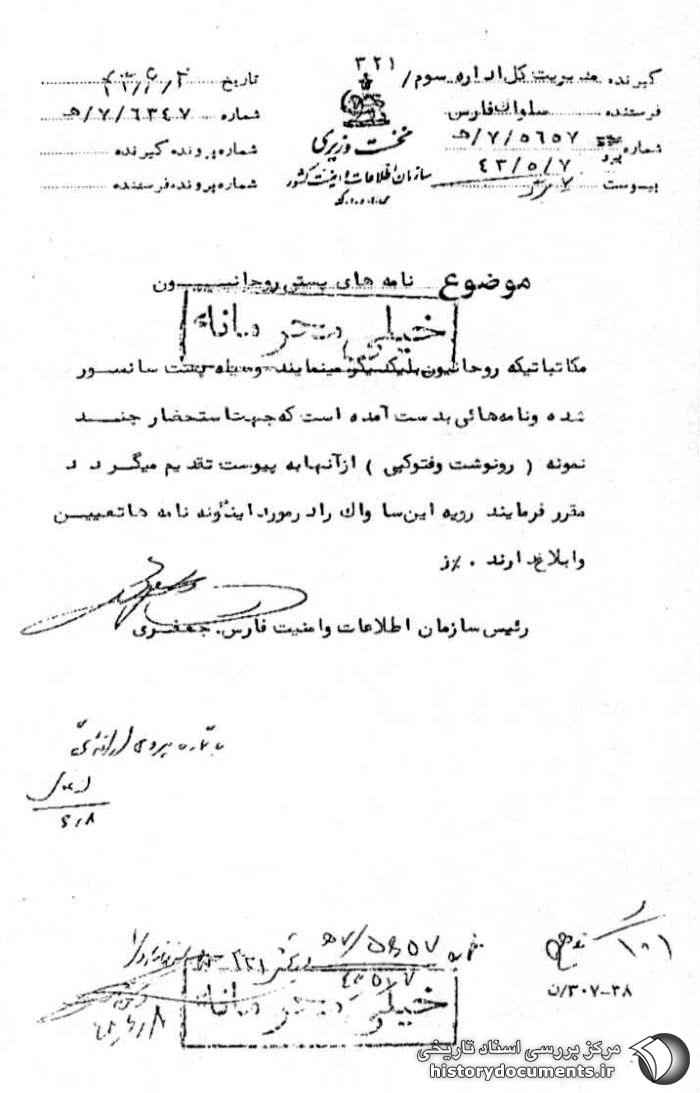 ۳۲۱
گیرنده مدیریت کل اداره سوم/
فرستنده ساواک فارس
شماره پیرو ۵۶۵۷/۷/ﻫ
۴۳/۵/۷
پیوست
نخست وزیری
سازمان اطلاعات و امنیت کشور
تاریخ ۴۳/۶/۲
شماره ۶۳۴۷/۷/ﻫ
شماره پرونده گیرنده
شماره پرونده فرستنده
موضوع نامه های پستی روحانیون
خیلی محرمانه
مکاتباتیکه روحانیون بلیکدیگر مینمایند وسیله پست سانسور
شده ونامه هائی بدست آمده است که جهت استحضار چند
نمونه ( رونوشت وفتوکپی ) ازآنها به پیوست تقدیم میگردد
مقرر فرمایند رویه این ساواک رادرمورد اینگونه نامه هاتعیین
وابلاغ دارند . ٪ز
رئیس سازمان اطلاعات وامنیت فارس. جعفری
۶٫۸
۵۶۵۷/ﻫ۷
۴۳٫۵٫۷
۳۲۱
خیلی محرمانه
۱۰۱
۳۰۷-۳۸/ن
مرکز بررسی اسناد تاریخی
historydocuments.ir